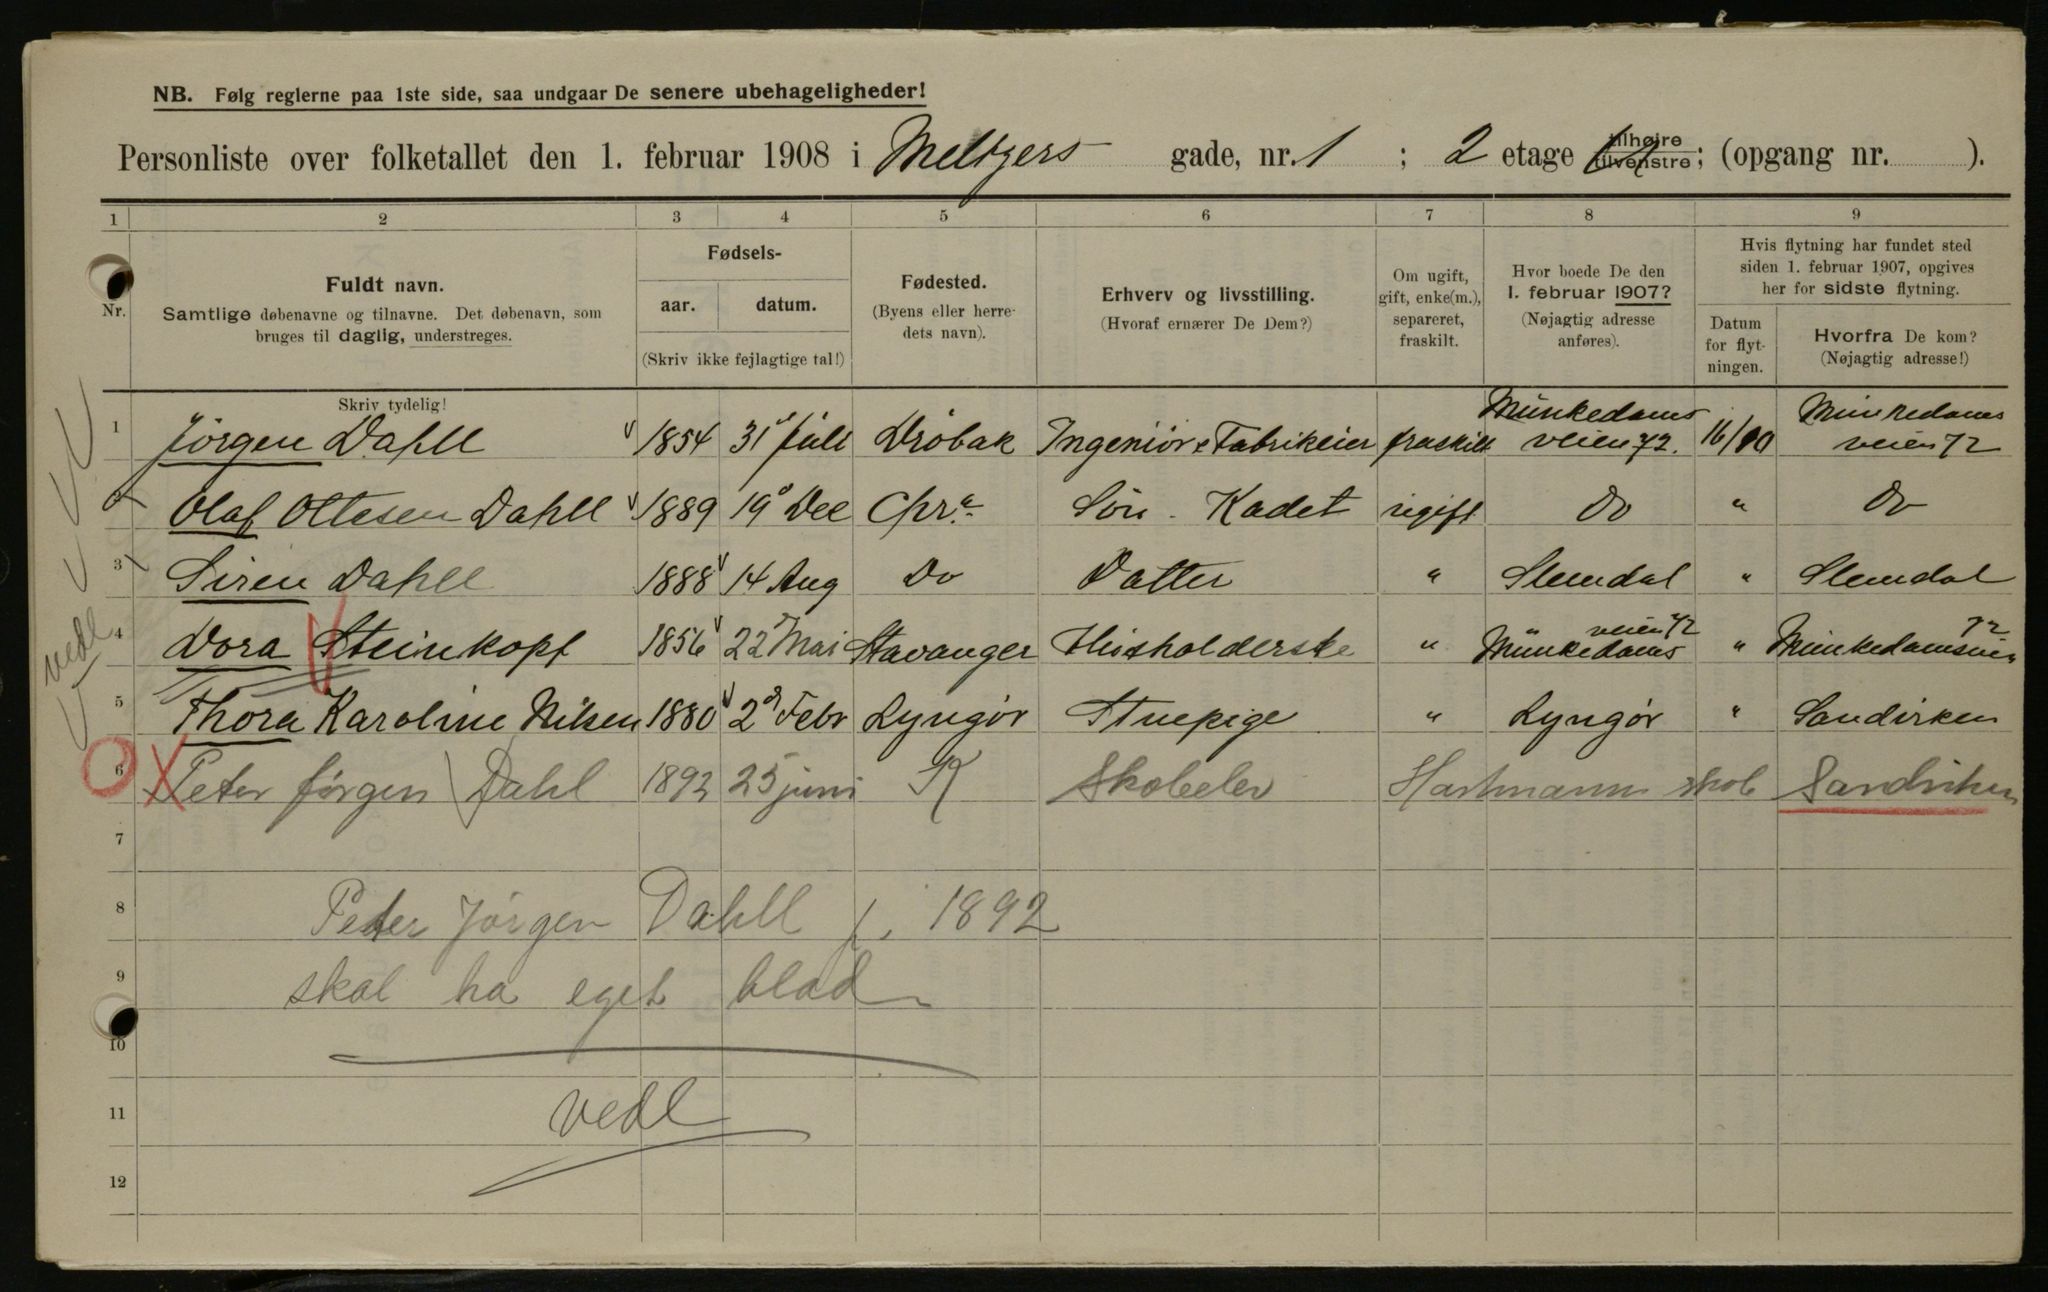 NB. Følg reglerne paa 1ste side, saa undgaar De senere ubehageligheder!
Personliste over folketallet den 1. februar 1908 i Meltzers gade, nr. 1 ; 2 etage tilhøjre tilvenstre; (opgang nr. ).
1 2 3 4 5 6 7 8 9
Nr.
Fuldt navn.
Samtlige døbenavne og tilnavne. Det døbenavn, som
bruges til daglig, understreges.
Skriv tydelig!
Fødsels-
aar. datum.
(Skriv ikke fejlagtige tal!)
Fødested.
(Byens eller herre-
dets navn).
Erhverv og livsstilling.
(Hvoraf ernærer De Dem?)
Om ugift,
gift, enke(m.),
separeret,
fraskilt.
Hvor boede De den
1. februar 1907?
(Nøjagtig adresse
anføres).
Hvis flytning har fundet sted
siden 1. februar 1907, opgives
her for sidste flytning.
Datum
for flyt-
ningen.
Hvorfra De kom?
(Nøjagtig adresse!)
1 Jörgen Dahll 1854 31 Juli Dröbak Ingeniör & Fabrikeier fraskilt Munkedams veien 72. 16/10 Munkedams veien 72
Olaf Ottesen Dahll 1889 19 Dec Chr.a Sön - Kadet ugift Do " Do
3 Siren Dahll 1888 14 Aug Do Datter " Slemdal " Slemdal
4 Dora Steinkopf 1856 22 Mai Stavanger Husholderske " Munkedams veien 72 " Munkedamsvn 72
5 Thora Karoline Nilsen 1880 2d Febr Lyngör Stuepige " Lyngör " Sandviken
6 Peter Jørgen Dahl 1892 25 juni K Skoleelev Hartmanns skole Sandviken
7
8 Peter Jørgen Dahll f. 1892
9 skal ha eget blad
10
11 vedl
12
vedl